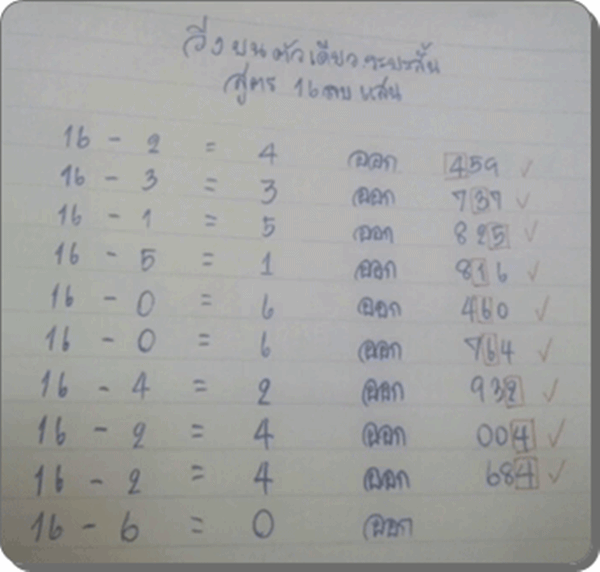 วิ่งบนตัวเดียวกระชากสั้น
สูตร 16 ลบ แสน
16 - 2 = 4 ออก 459 ✓
16 - 3 = 3 ออก 737 ✓
16 - 1 = 5 ออก 825 ✓
16 - 5 = 1 ออก 816 ✓
16 - 0 = 6 ออก 460 ✓
16 - 0 = 6 ออก 764 ✓
16 - 4 = 2 ออก 932 ✓
16 - 2 = 4 ออก 004 ✓
16 - 2 = 4 ออก 684 ✓
16 - 6 = 0 ออก